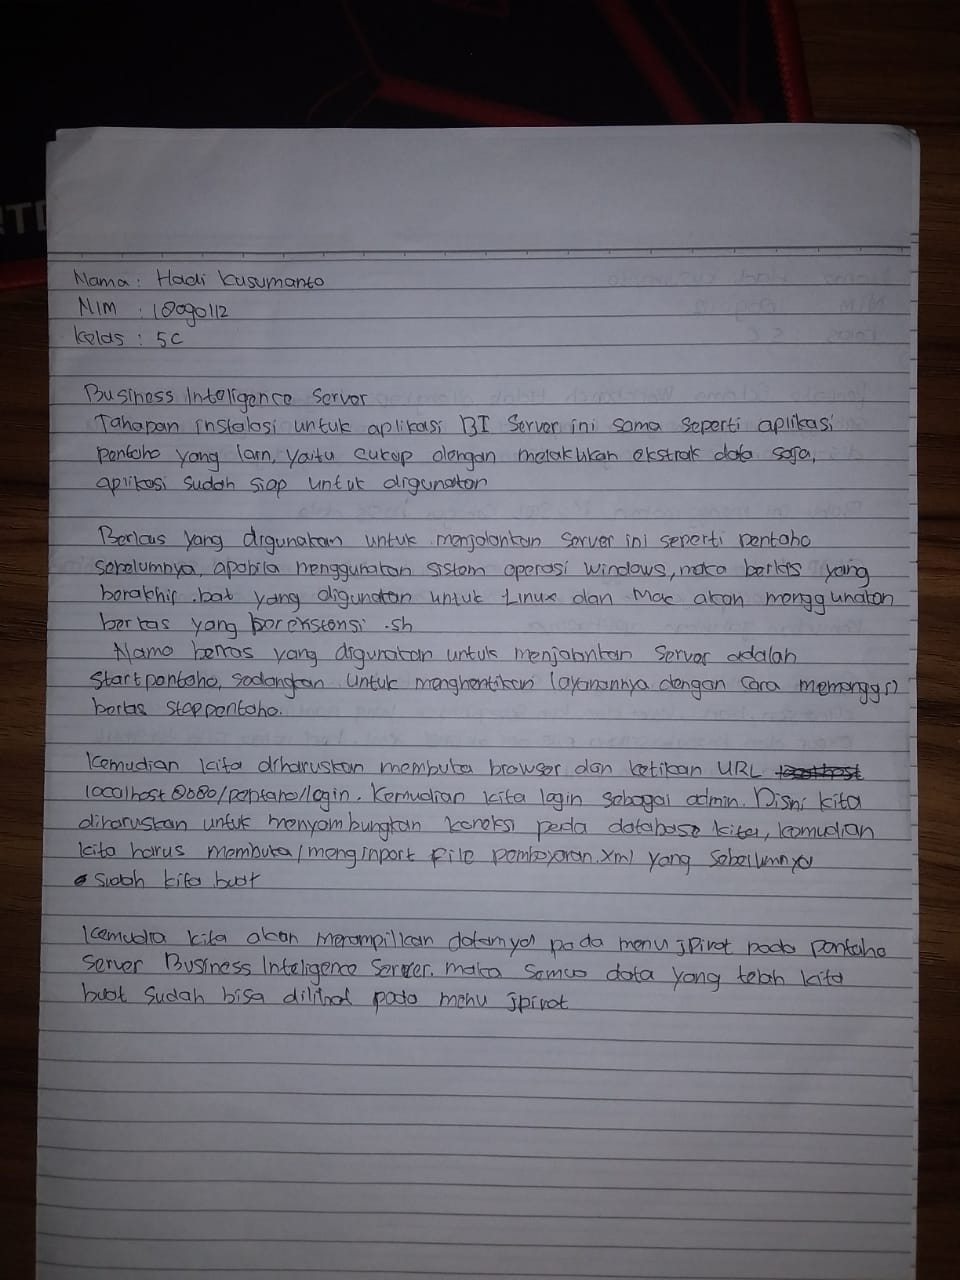 Nama : Hadi Kusumanto
NIM : 18090112
Kelas : 5C
Business Inteligence Server
Tahapan instalasi untuk aplikasi BI Server ini sama seperti aplikasi
pentaho yang lain, yaitu cukup dengan melakukan ekstrak data saja,
aplikasi sudah siap untuk digunakan
Berkas yang digunakan untuk menjalankan server ini seperti pentaho
sebelumnya, apabila menggunakan sistem operasi windows, maka berkas yang
berakhir .bat yang digunakan untuk Linux dan Mac akan menggunakan
berkas yang berekstensi .sh
Nama berkas yang digunakan untuk menjalankan server adalah
startpentaho, sedangkan untuk menghentikan layanannya dengan cara memanggil
berkas stoppentaho.
Kemudian kita diharuskan membuka browser dan ketikan URL
localhost 8080/pentaho/login. Kemudian kita login sebagai admin. Disni kita
diharuskan untuk menyambungkan koneksi pada database kita, kemudian
kita harus membuka/mengimport file pembayaran.xml yang sebelumnya
sudah kita buat
Kemudia kita akan menampilkan datamya pada menu jpivot pada pentaho
server Business Inteligence Server. maka semua data yang telah kita
buat sudah bisa dilihat pada menu jpivot